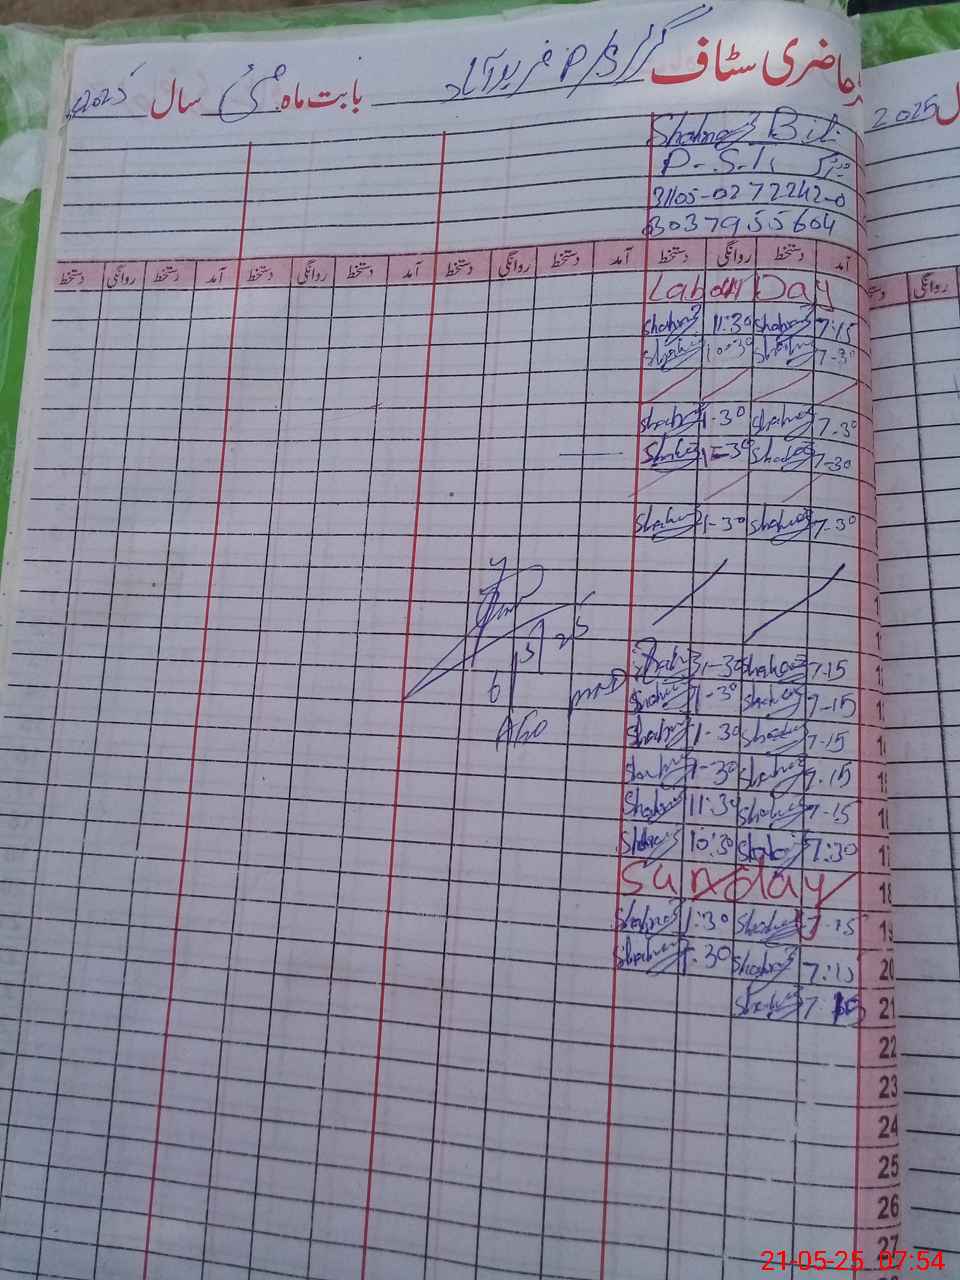 حاضری سٹاف گرلز P/S غریب آباد بابت ماہ مئی سال 2025
ل 2025
Shahnaz Bibi
P.S.T.
31105-0272242-0
3037955604
آمد دستخط روانگی دستخط آمد دستخط روانگی دستخط آمد دستخط روانگی دستخط
روانگی
Labour Day
7:15 Shahnaz 11:30 Shahnaz
7-30 Shahnaz 10-30 Shahnaz
7-30 Shahnaz 1-30 Shahnaz
7-30 Shahnaz 1-30 Shahnaz
7-30 Shahnaz 1-30 Shahnaz
7-15 Shahnaz 1-30 Shahnaz
7-15 Shahnaz 1-30 Shahnaz
7-15 Shahnaz 1-30 Shahnaz
7-15 Shahnaz 1-30 Shahnaz
7-15 Shahnaz 11:30 Shahnaz
7:30 Shahnaz 10:30 Shahnaz
18 Sunday
19 7-15 Shahnaz 1:30 Shahnaz
20 7:15 Shahnaz 1-30 Shahnaz
21 7.15 Shahnaz
AEO
22
23
24
25
26
27
21-05-25 07:54